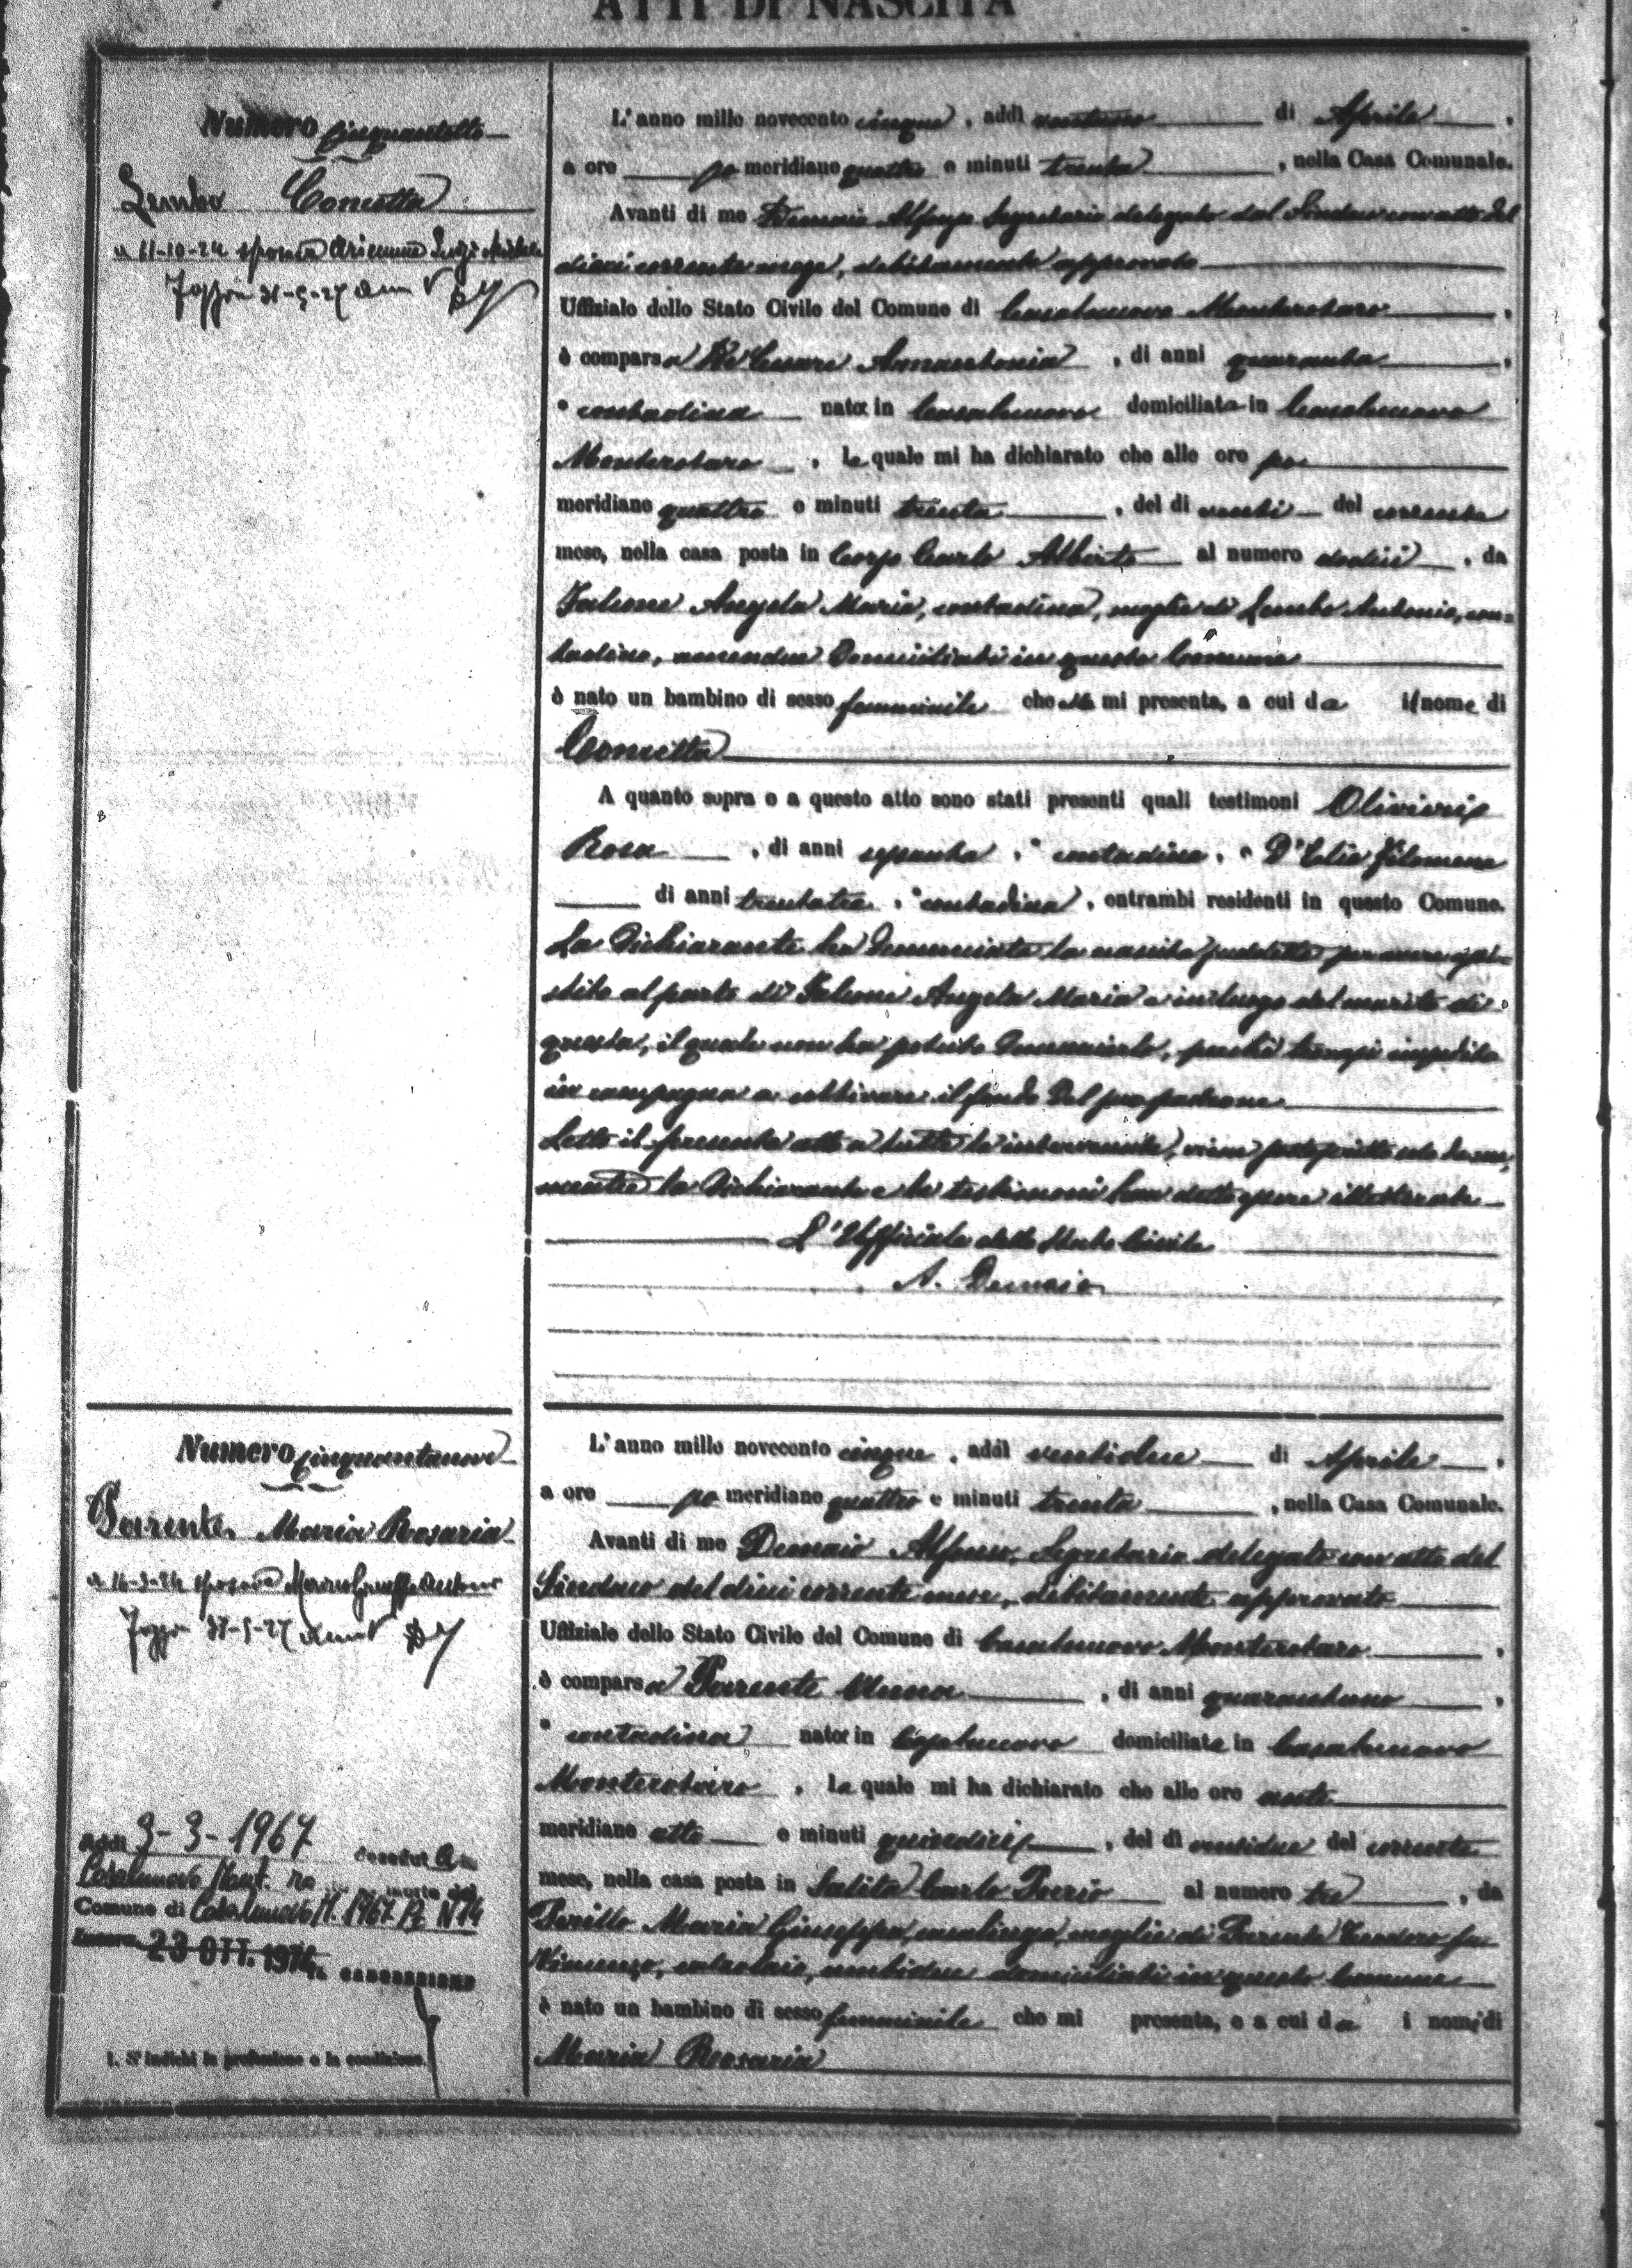 ATTI DI NASCITA
Numero cinquantotto
Lembo Concetta
Numero cinquantanove
Parente Maria Rosaria
Addì 3-3-1967
Casalnuovo Mont. ro
Comune di Casalnuovo M. 1967 N 14
23 OTT. 1974
1. Si indichi la professione o la condizione.
L'anno mille novecento cinque, addì ventuno di Aprile,
a ore po meridiane quattro e minuti trenta, nella Casa Comunale.
Avanti di me Demaio Alfonso Segretario delegato dal Sindaco con atto del
dieci corrente mese, debitamente approvato
Uffiziale dello Stato Civile del Comune di Casalnuovo Monterotaro,
è comparsa De Cesare Annantonia, di anni quaranta,
contadina nata in Casalnuovo domiciliata in Casalnuovo
Monterotaro, la quale mi ha dichiarato che alle ore po
meridiane quattro e minuti trenta, del dì venti del corrente
mese, nella casa posta in Corso Carlo Alberto al numero dodici, da
Falcone Angela Maria, contadina, moglie di Lembo Antonio, con=
tadino, amendue domiciliati in questo Comune
è nato un bambino di sesso femminile che mi presenta, a cui da il nome di
Concetta
A quanto sopra e a questo atto sono stati presenti quali testimoni Olivieri
Rosa, di anni contadina, e D'Elia Filomena
di anni trentatre, contadina, entrambi residenti in questo Comune.
La dichiarante ha denunciato la nascita suddetta per avere assi=
stito al parto di Falcone Angela Maria e in luogo del marito di
questa, il quale non ha potuto denunciarlo, perchè trovasi impedito
in campagna a coltivare il fondo del suo padrone
Letto il presente atto a tutte le intervenute, viene sottoscritto solo da me,
mentre la dichiarante e le testimoni han detto essere illetterate
L'Uffiziale dello Stato Civile
A. Demaio
L'anno mille novecento cinque, addì ventidue di Aprile,
a ore po meridiane quattro e minuti trenta, nella Casa Comunale.
Avanti di me Demaio Alfonso, Segretario delegato con atto del
Sindaco del dieci corrente mese, debitamente approvato
Uffiziale dello Stato Civile del Comune di Casalnuovo Monterotaro,
è comparsa Parente Anna, di anni quarantuno,
contadina nata in Casalnuovo domiciliata in Casalnuovo
Monterotaro, la quale mi ha dichiarato che alle ore ante
meridiane otto e minuti quindici, del dì ventidue del corrente
mese, nella casa posta in Salita Carlo Poerio al numero tre, da
Perillo Maria Giuseppa, casalinga, moglie di Parente Teodoro fu
Vincenzo, ambidue domiciliati in questo Comune
è nato un bambino di sesso femminile che mi presenta, e a cui da i nomi di
Maria Rosaria